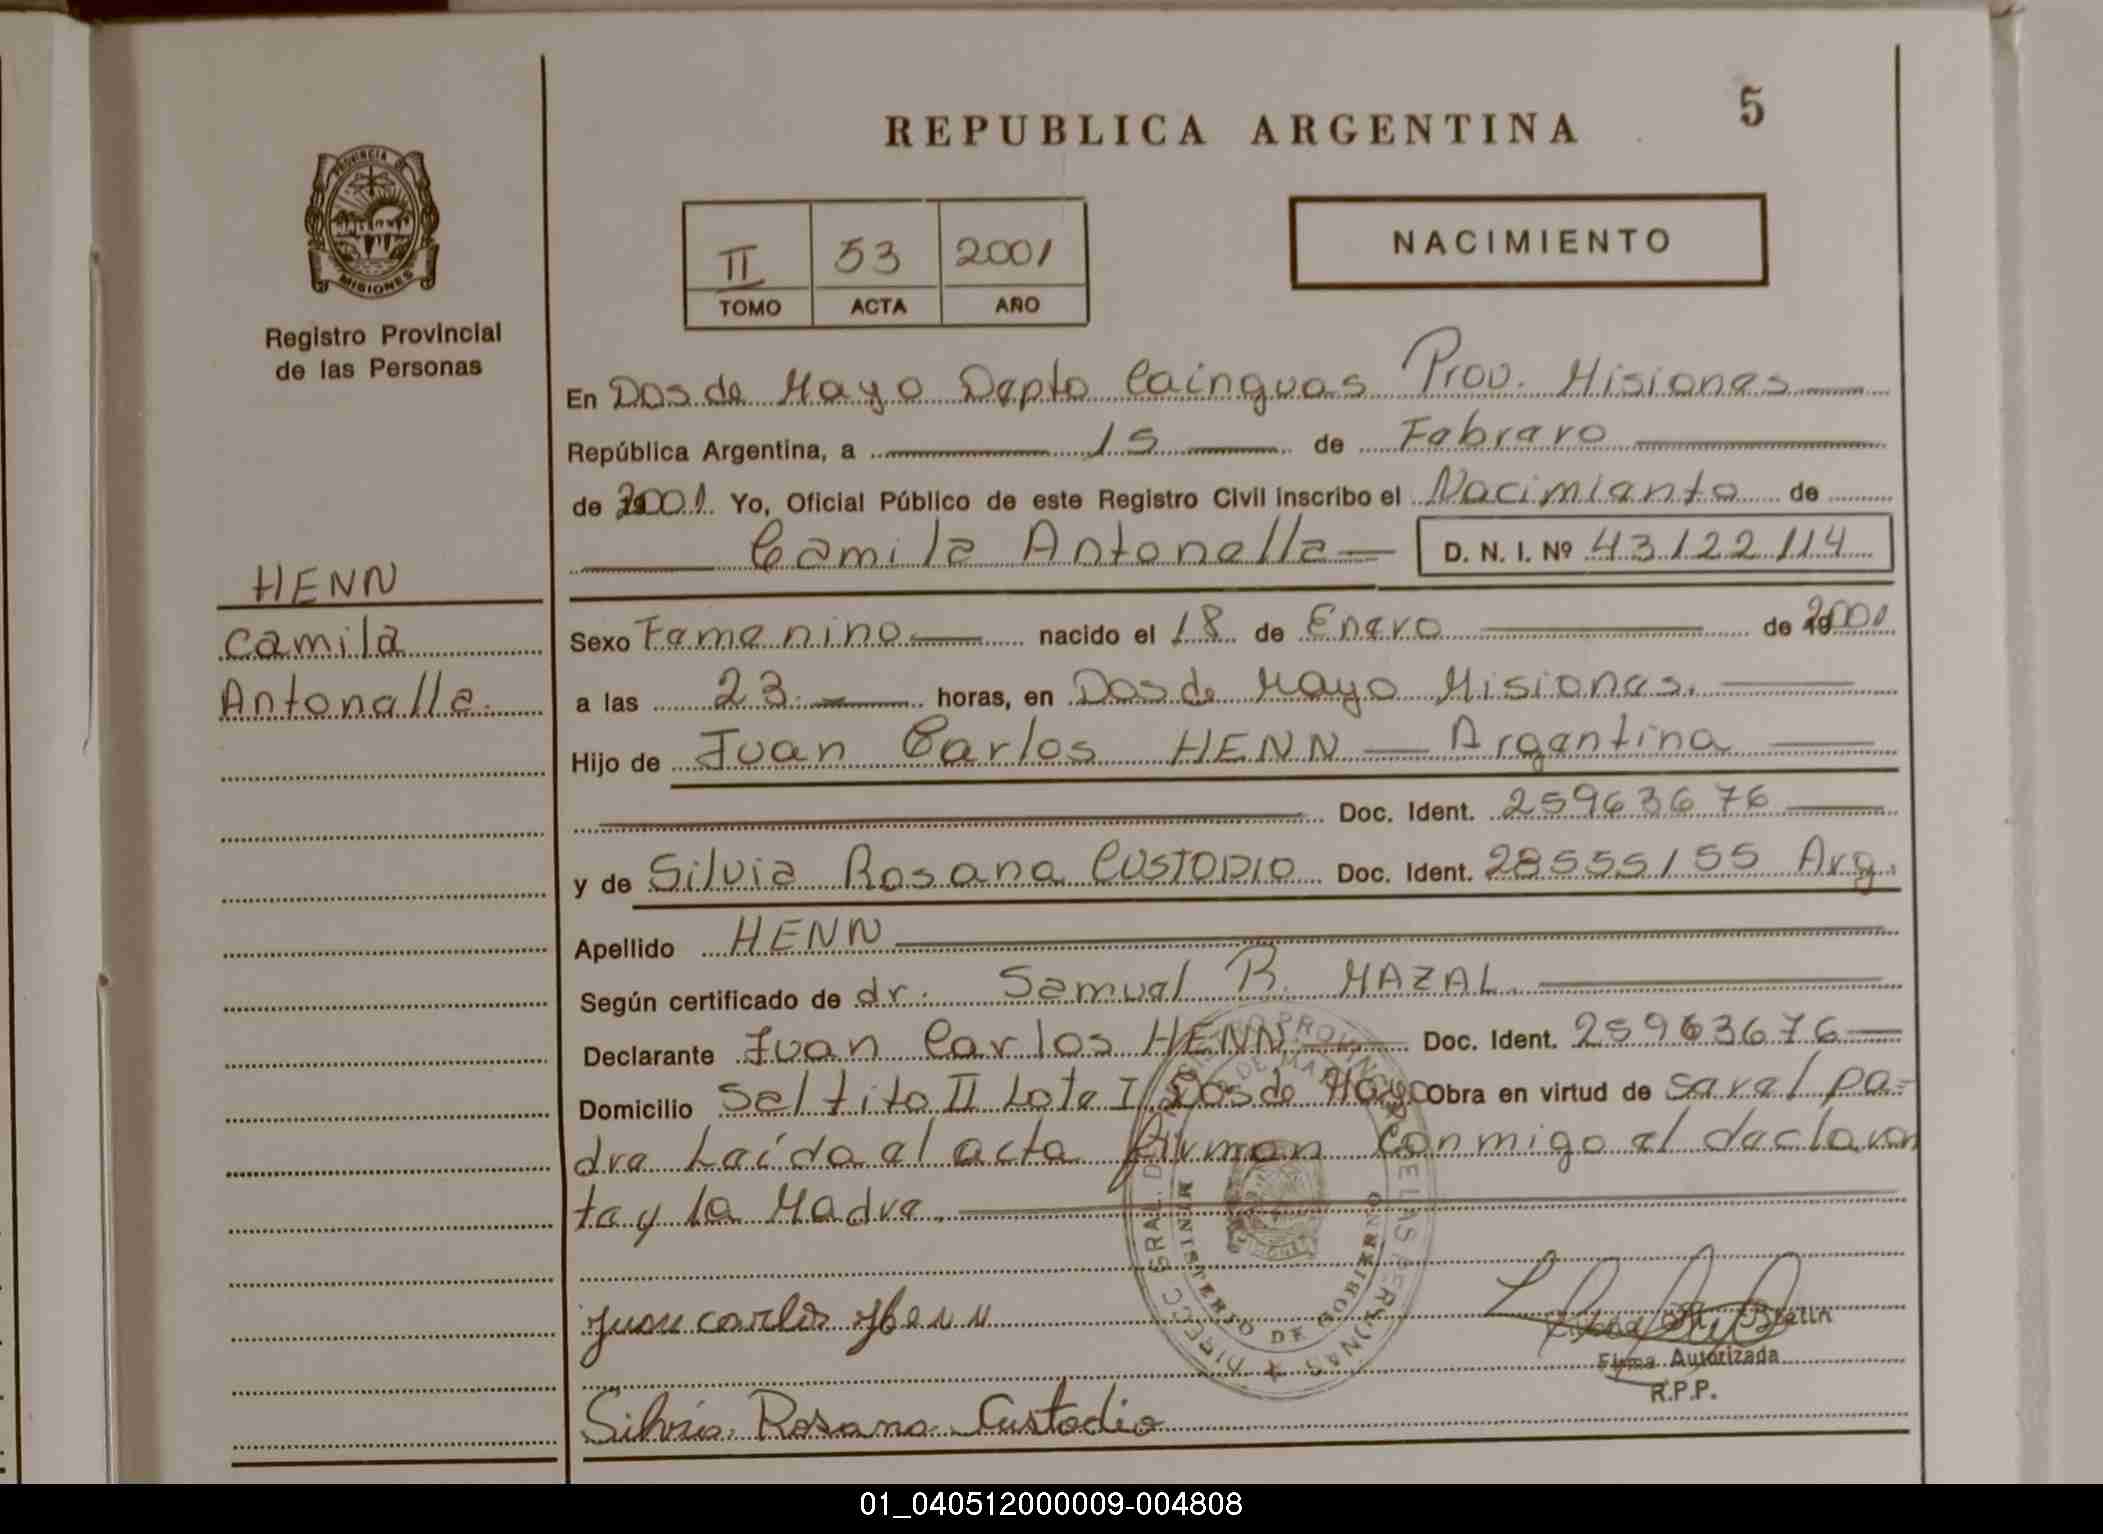 5
REPUBLICA ARGENTINA
NACIMIENTO
II 53 2001
TOMO ACTA AÑO
PROVINCIA DE MISIONES
Registro Provincial
de las Personas
HENN
Camila
Antonella.
En Dos de Mayo Depto Cainguas Prov. Misiones
República Argentina, a 15 de Febrero
de 2001. Yo, Oficial Público de este Registro Civil inscribo el Nacimiento de
Camila Antonella D. N. I. Nº 43122114
Sexo Femenino nacido el 18 de Enero de 2001
a las 23. horas, en Dos de Mayo Misiones.
Hijo de Juan Carlos HENN Argentina
Doc. Ident. 25963676
y de Silvia Rosana CUSTODIO Doc. Ident. 28555155 Arg.
Apellido HENN
Según certificado de dr. Samuel R. MAZAL.
Declarante Juan Carlos HENN Doc. Ident. 25963676
Domicilio Saltito II Lote I Dos de Mayo Obra en virtud de ser el pa=
dre Leída el acta firman conmigo el declaran
te y la Madre.
Juan carlos Henn
Firma Autorizada
R.P.P.
Silvia Rosana Custodio
MINISTERIO DE GOBIERNO
01_040512000009-004808